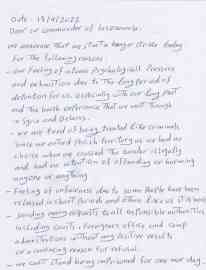 Date: 19/4/2022
Dear sir commander of
we announce that we start a hunger strike today
For the following reasons
- our Feeling of intense Psychological Pressure
and exhaustion due to the long period of
detention for us, especially with our long past
and the harsh experience that we went through
in Syria and Belarus.
- we are tired of being treated like criminals
Since we entered Polish territory as we had no
choice when we crossed the border illegally
and had no intention of offending or harming
anyone or anything
- Feeling of unfairness due to some People have been
released in short Periods and others like us it is
- sending many requests to all responsible authorities
including courts, Foreigners office and camp
administrations without any positive results
or a convincing reason for refusal.
- we can't stand being imprisoned for one mor day.